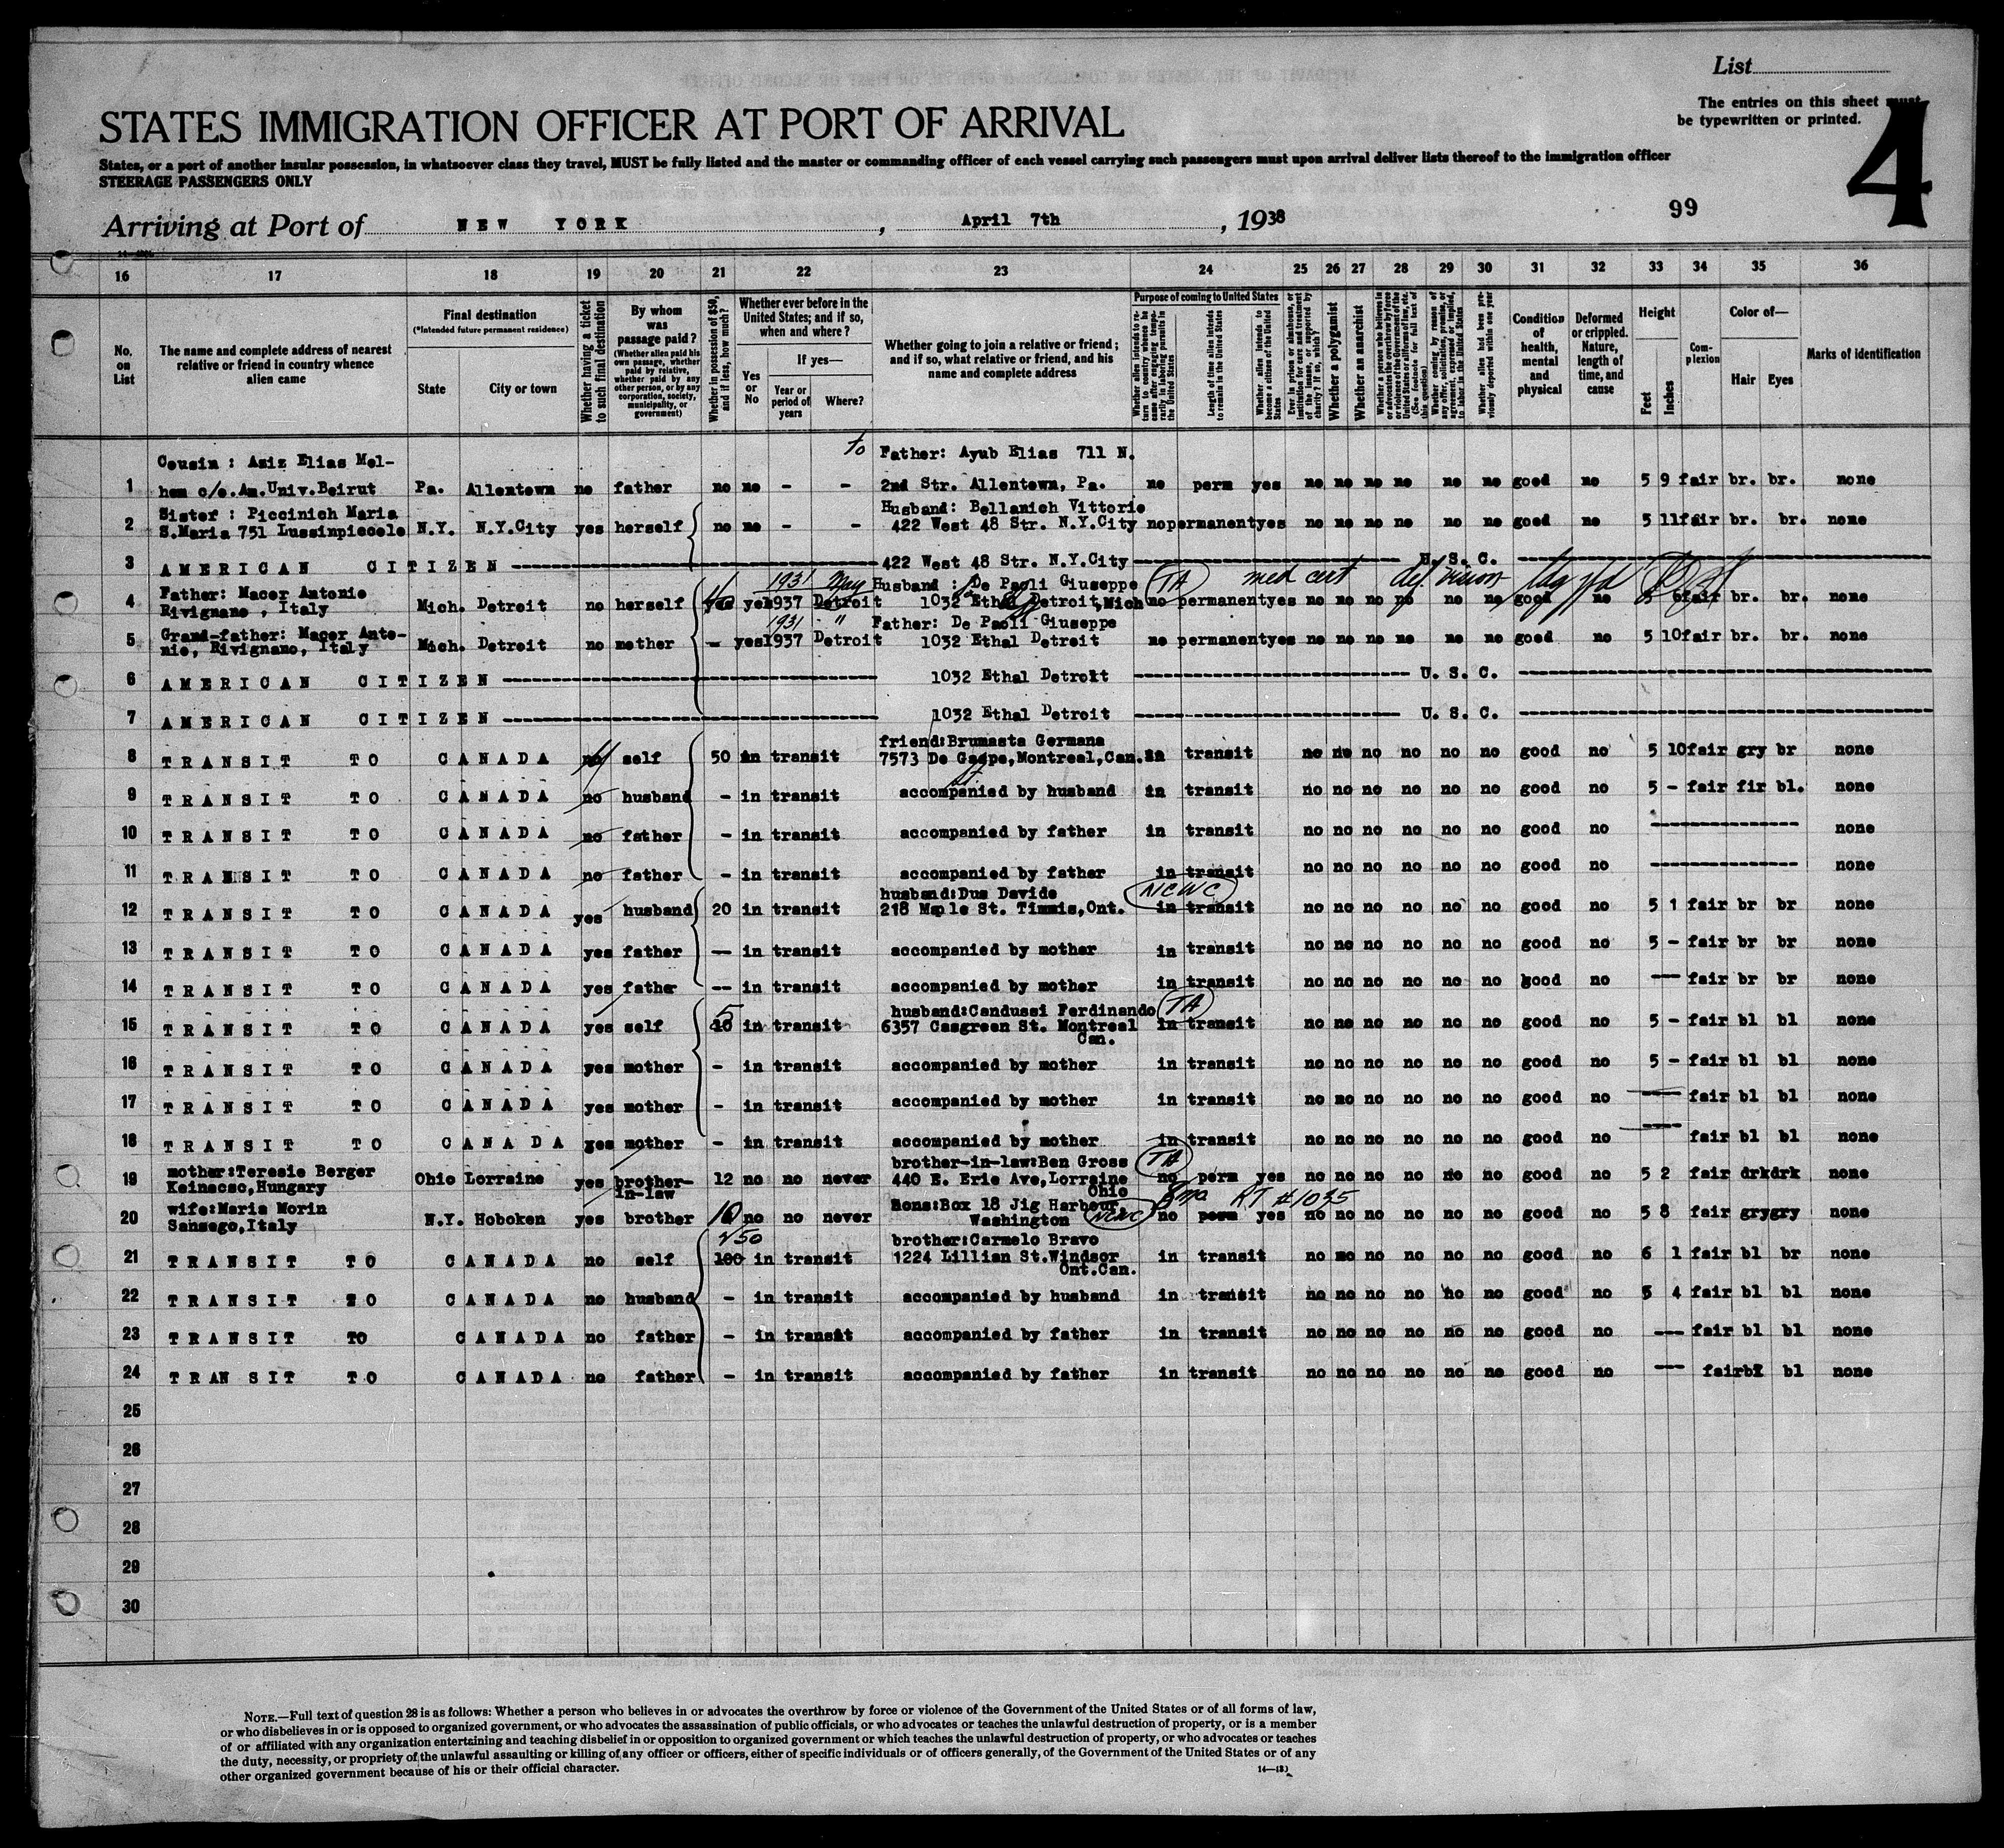 List
The entries on this sheet must
be typewritten or printed.
4
STATES IMMIGRATION OFFICER AT PORT OF ARRIVAL
States, or a port of another insular possession, in whatsoever class they travel, MUST be fully listed and the master or commanding officer of each vessel carrying such passengers must upon arrival deliver lists thereof to the immigration officer
STEERAGE PASSENGERS ONLY
99
Arriving at Port of NEW YORK, April 7th, 1938
16 17 18 19 20 21 22 23 24 25 26 27 28 29 30 31 32 33 34 35 36
No. on List
The name and complete address of nearest relative or friend in country whence alien came
Final destination
(*Intended future permanent residence)
State
City or town
Whether having a ticket to such final destination
By whom was passage paid?
(Whether alien paid his own passage, whether paid by relative, whether paid by any other person, or by any corporation, society, municipality, or government)
Whether in possession of $50, and if less, how much?
Whether ever before in the United States; and if so, when and where?
Yes or No
If yes—
Year or period of years
Where?
Whether going to join a relative or friend; and if so, what relative or friend, and his name and complete address
Purpose of coming to United States
Whether alien intends to return to country whence he came after engaging temporarily in laboring pursuits in the United States
Length of time alien intends to remain in the United States
Whether alien intends to become a citizen of the United States
Ever in prison or almshouse, or institution for care and treatment of the insane, or supported by charity? If so, which?
Whether a polygamist
Whether an anarchist
Whether a person who believes in or advocates the overthrow by force or violence of the Government of the United States or all forms of law, etc. (See footnote for full text of this question)
Whether coming by reason of any offer, solicitation, promise, or agreement, expressed or implied, to labor in the United States
Whether alien had been previously deported within one year
Condition of health, mental and physical
Deformed or crippled. Nature, length of time, and cause
Height
Feet
Inches
Complexion
Color of—
Hair
Eyes
Marks of identification
Cousin : Aziz Elias Mel- to Father: Ayub Elias 711 N.
1 hem c/o.Am.Univ.Beirut Pa. Allentown no father no no - - 2nd Str. Allentown, Pa. no perm yes no no no no no no good no 5 9 fair br. br. none
Sister : Piccinich Maria Husband: Bellanich Vittorio
2 S.Maria 751 Lussinpiccolo N.Y. N.Y.City yes herself no no - - 422 West 48 Str. N.Y.City no permanent yes no no no no no no good no 5 11 fair br. br. none
3 AMERICAN CITIZEN 422 West 48 Str. N.Y.City U.S.C.
Father: Macor Antonio 1931 Husband : De Paoli Giuseppe TA med cert def vision
4 Rivignano , Italy Mich. Detroit no herself yes yes 1937 Detroit 1032 Ethal Detroit, Mich no permanent yes no no no no no no good no fair br. br. none
Grand-father: Macor Anto- 1931 " Father: De Paoli Giuseppe
5 nio, Rivignano, Italy Mich. Detroit no mother - yes 1937 Detroit 1032 Ethal Detroit no permanent yes no no no no no no good no 5 10 fair br. br. none
6 AMERICAN CITIZEN 1032 Ethal Detroit U.S.C.
7 AMERICAN CITIZEN 1032 Ethal Detroit U.S.C.
friend:Brumasta Germana
8 TRANSIT TO CANADA no self 50 in transit 7573 De Gaspe,Montreal,Can. in transit no no no no no no good no 5 10 fair gry br none
9 TRANSIT TO CANADA no husband - in transit accompanied by husband in transit no no no no no no good no 5 - fair fir bl. none
10 TRANSIT TO CANADA no father - in transit accompanied by father in transit no no no no no no good no none
11 TRANSIT TO CANADA no father - in transit accompanied by father in transit no no no no no no good no none
husband:Dus Davide NCWC
12 TRANSIT TO CANADA yes husband 20 in transit 218 Maple St. Timmis,Ont. in transit no no no no no no good no 5 1 fair br br none
13 TRANSIT TO CANADA yes father - in transit accompanied by mother in transit no no no no no no good no 5 - fair br br none
14 TRANSIT TO CANADA yes fathe -- in transit accompanied by mother in transit no no no no no no good no fair br br none
5 husband:Candussi Ferdinando TA
15 TRANSIT TO CANADA yes self 10 in transit 6357 Casgreen St. Montreal in transit no no no no no no good no 5 - fair bl bl none
Can.
16 TRANSIT TO CANADA yes mother - in transit accompanied by mother in transit no no no no no no good no 5 - fair bl bl none
17 TRANSIT TO CANADA yes mother - in transit accompanied by mother in transit no no no no no no good no fair bl bl none
18 TRANSIT TO CANADA yes mother - in transit accompanied by mother in transit no no no no no no good no fair bl bl none
mother:Teresie Berger brother-in-law:Ben Gross TA
19 Keinacso,Hungary Ohio Lorraine yes brother- 12 no no never 440 E. Erie Ave,Lorraine no perm yes no no no no no no good no 5 2 fair drk drk none
in-law Ohio
wife:Maria Morin Sons:Box 18 Jig Harbour 6mo RT #1035
20 Sansego,Italy N.Y. Hoboken yes brother 10 no no never Washington NCWC no perm yes no no no no no no good no 5 8 fair gry gry none
250 brother:Carmelo Bravo
21 TRANSIT TO CANADA no self 100 in transit 1224 Lillian St.Windsor in transit no no no no no no good no 6 1 fair bl br none
Ont.Can.
22 TRANSIT TO CANADA no husband - in transit accompanied by husband in transit no no no no no no good no 5 4 fair bl bl none
23 TRANSIT TO CANADA no father - in transit accompanied by father in transit no no no no no no good no --- fair bl bl none
24 TRANSIT TO CANADA no father - in transit accompanied by father in transit no no no no no no good no --- fair bl bl none
25
26
27
28
29
30
NOTE.—Full text of question 28 is as follows: Whether a person who believes in or advocates the overthrow by force or violence of the Government of the United States or of all forms of law,
or who disbelieves in or is opposed to organized government, or who advocates the assassination of public officials, or who advocates or teaches the unlawful destruction of property, or is a member
of or affiliated with any organization entertaining and teaching disbelief in or opposition to organized government or which teaches the unlawful destruction of property, or who advocates or teaches
the duty, necessity, or propriety of the unlawful assaulting or killing of any officer or officers, either of specific individuals or of officers generally, of the Government of the United States or of any
other organized government because of his or their official character.